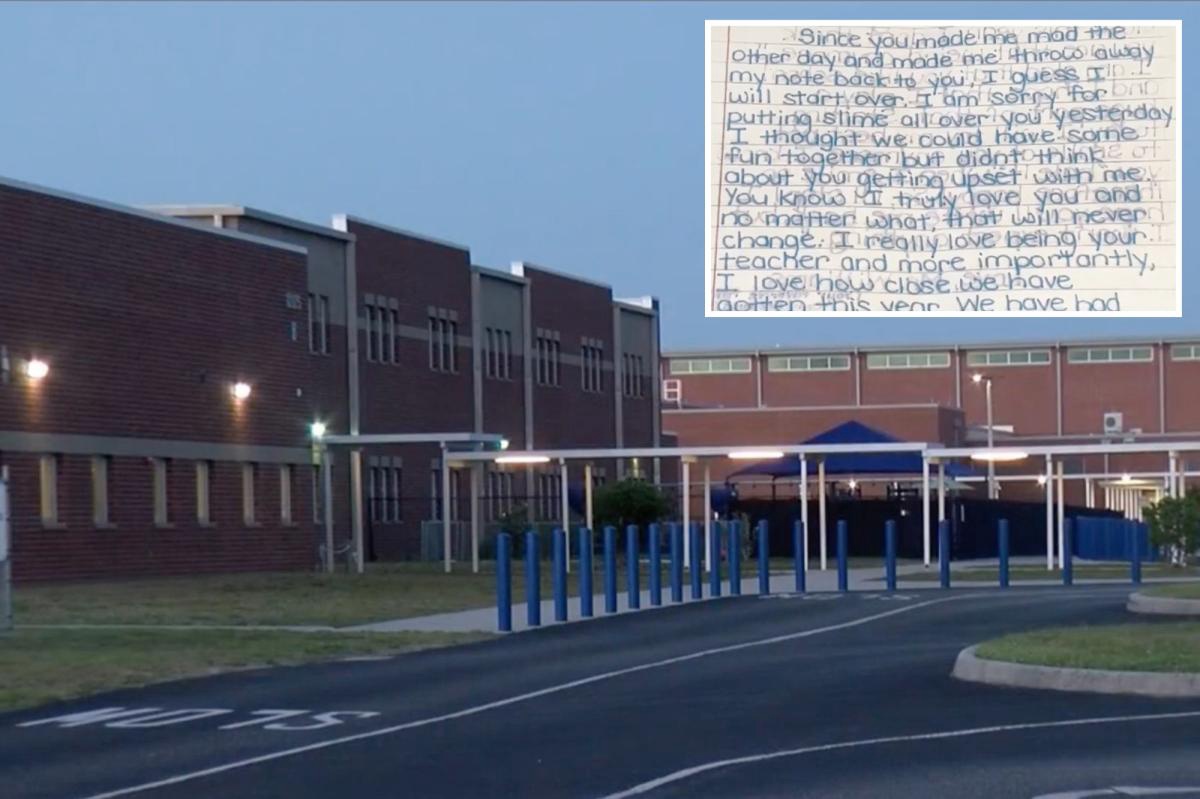 Since you made me mad the
other day and made me throw away
my note back to you, I guess I
will start over. I am sorry for
putting slime all over you yesterday
I thought we could have some
fun together but didnt think
about you getting upset with me.
You know I truly love you and
no matter what, that will never
change. I really love being your
teacher and more importantly,
I love how close we have
gotten this year. We have had
SLOW